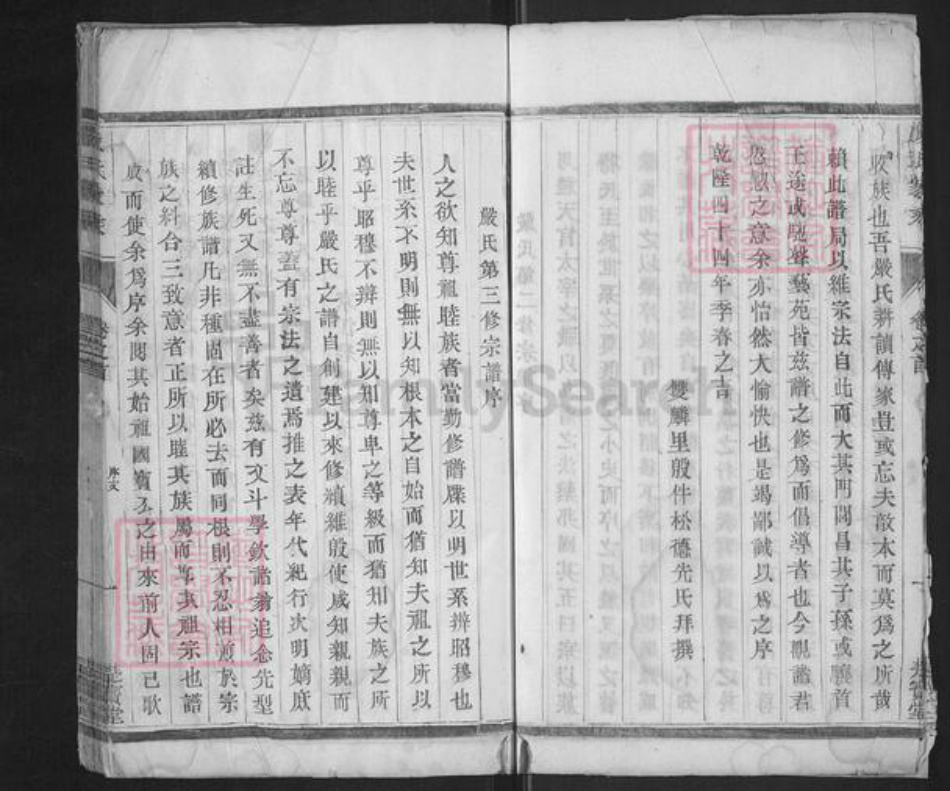 收族也吾嚴氏耕讀傳家豈或忘夫敬本而莫爲之所哉
賴此譜局以維宗法自此而大其門閭昌其子孫或廌首
王途或馳聲藝苑皆兹譜之修爲而倡導者也今觀諸君
之意余亦怡然大愉快也是竭鄙誠以爲之序
乾隆四十四年季春之吉
雙麟里殷件松德先氏拜撰
嚴氏第三修宗譜序
人之欲知尊祖睦族者當勤修譜牒以明世系辨昭穆也
夫世系不明則無以知根本之自始而猶知夫祖之所以
尊乎昭穆不辨則無以知尊卑之等級而猶知夫族之所
以睦乎嚴氏之譜自創建以來修續維殷使咸知親親而
不忘尊尊蓋有宗法之遺焉推之表年代紀行次明嫡庶
註生死又無不盡善者矣兹有文斗學欽諸翁追念先型
續修族譜凡非種固在所必去而同根則不忍相煎於宗
族之糾合三致意者正所以睦其族屬而尊其祖宗也譜
成而使余爲序余閱其始祖國寶公之由來前人固已歌
卷之首
序文
FamilySearch